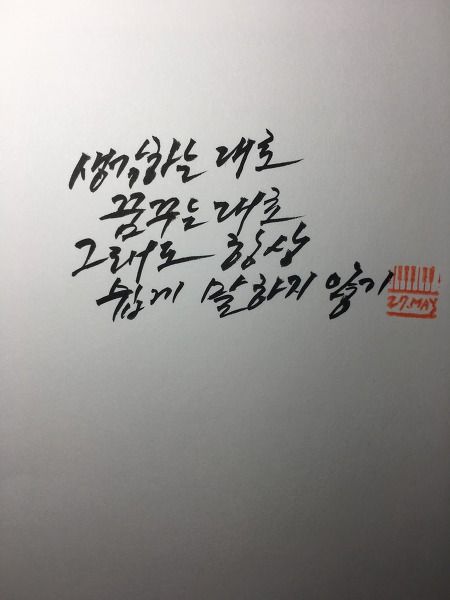 생각하는 대로
꿈꾸는 대로
그래도 항상
쉽게 말하지 않기
27.MAY